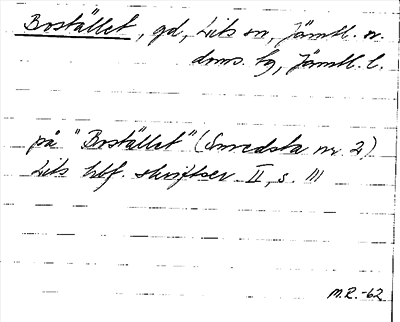 Bostället, gd, Lits sn, Jämtl. n.
doms. hg, Jämtl. l.
på "Bostället" (Smedsta nr. 2)
Lits hbf. skrifter II, s. 111
M.R.-62